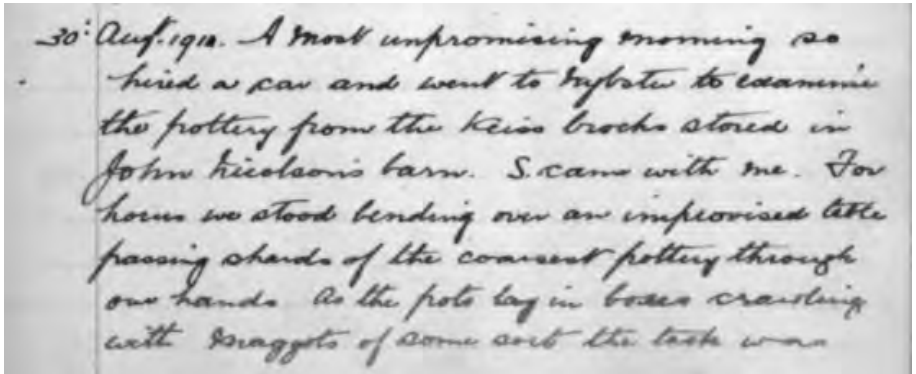 30: Augt. 1910. A most unpromising morning so
hired a car and went to Nybster to examine
the pottery from the Keiss brochs stored in
John Nicolson's barn. S. came with me. For
hours we stood bending over an improvised table
passing shards of the coarsest pottery through
our hands As the pots lay in boxes crawling
with maggots of some sort the task was